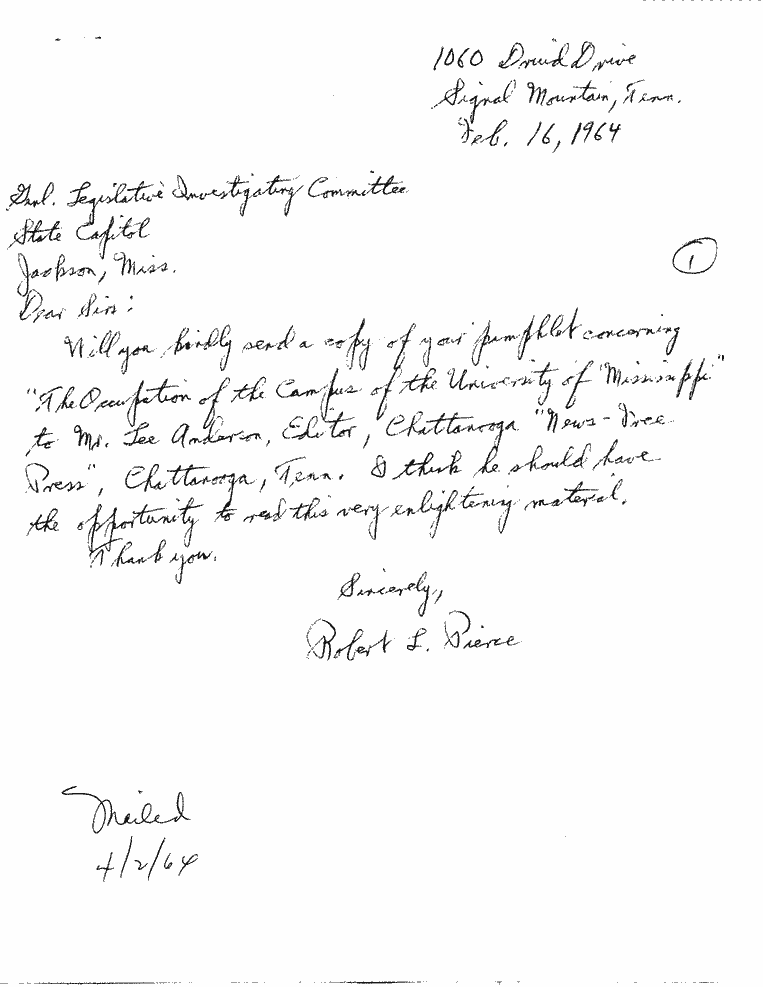 1060 Druid Drive
Signal Mountain, Tenn.
Feb. 16, 1964
Genl. Legislative Investigating Committee
State Capitol
Jackson, Miss.
①
Dear Sirs:
Will you kindly send a copy of your pamphlet concerning
"The Occupation of the Campus of the University of Mississippi"
to Mr. Lee Anderson, Editor, Chattanooga "News-Free
Press", Chattanooga, Tenn. I think he should have
the opportunity to read this very enlightening material.
Thank you.
Sincerely,
Robert L. Pierce
Mailed
4/2/64